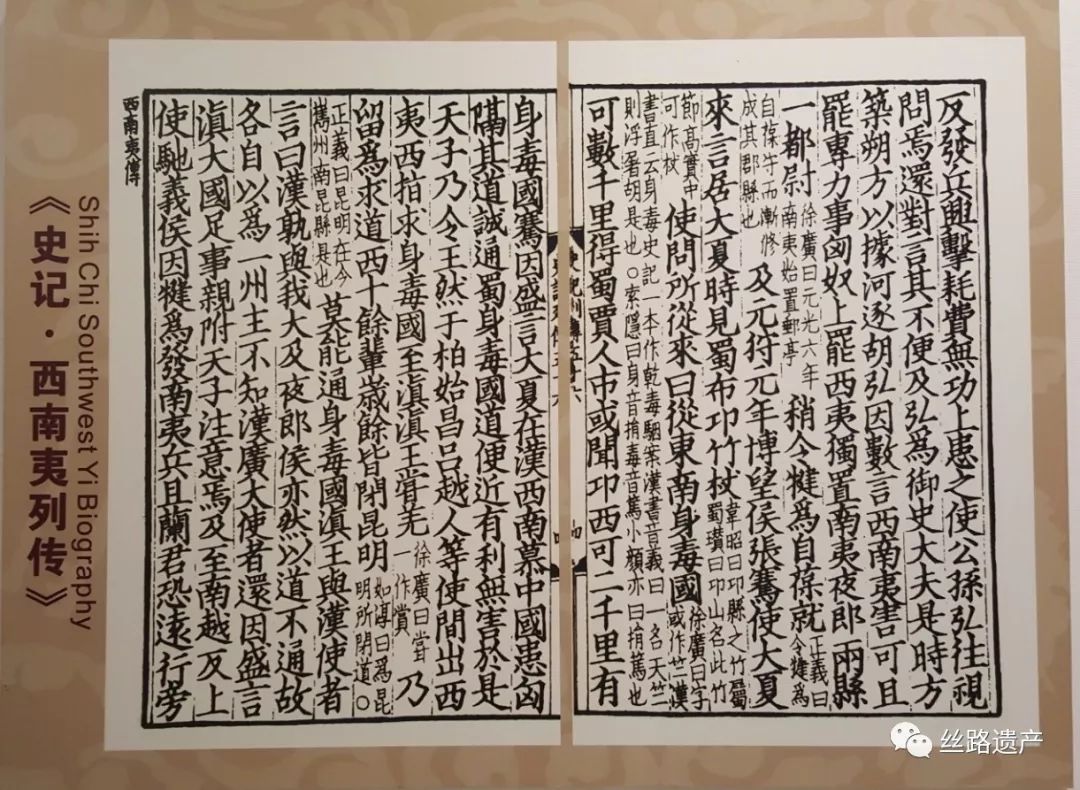 反發兵興擊耗費無功上患之使公孫弘往視
問焉還對言其不便及弘爲御史大夫是時方
築朔方以據河逐胡弘因數言西南夷害可且
罷專力事匈奴上罷西夷獨置南夷夜郎兩縣
一都尉 徐廣曰元光六年南夷始置郵亭 稍令犍爲自葆就 正義曰令犍爲
自葆守而漸修成其郡縣也 及元狩元年博望侯張騫使大夏
來言居大夏時見蜀布邛竹杖 韋昭曰邛縣之竹屬蜀瓚曰邛山名此竹
節高實中可作杖 使問所從來曰從東南身毒國 徐廣曰字或作竺漢
書直云身毒史記一本作乾毒駰案漢書音義曰一名天竺則浮屠胡是也○索隱曰身音捐毒音篤小顏亦曰捐篤也
可數千里得蜀賈人市或聞邛西可二千里有
身毒國騫因盛言大夏在漢西南慕中國患匈
隔其道誠通蜀身毒國道便近有利無害於是
天子乃令王然于柏始昌呂越人等使間出西
夷西指求身毒國至滇滇王甞羌 徐廣曰甞一作賞 乃
留爲求道西十餘輩歲餘皆閉昆明 如淳曰爲昆明所閉道○
正義曰昆明在今嶲州南昆縣是也 莫能通身毒國滇王與漢使者
言曰漢孰與我大及夜郎侯亦然以道不通故
各自以爲一州主不知漢廣大使者還因盛言
滇大國足事親附天子注意焉及至南越反上
使馳義侯因犍爲發南夷兵且蘭君恐遠行旁
西南夷傳
史記列傳五十六
Shih Chi Southwest Yi Biography
《史记·西南夷列传》
丝路遗产